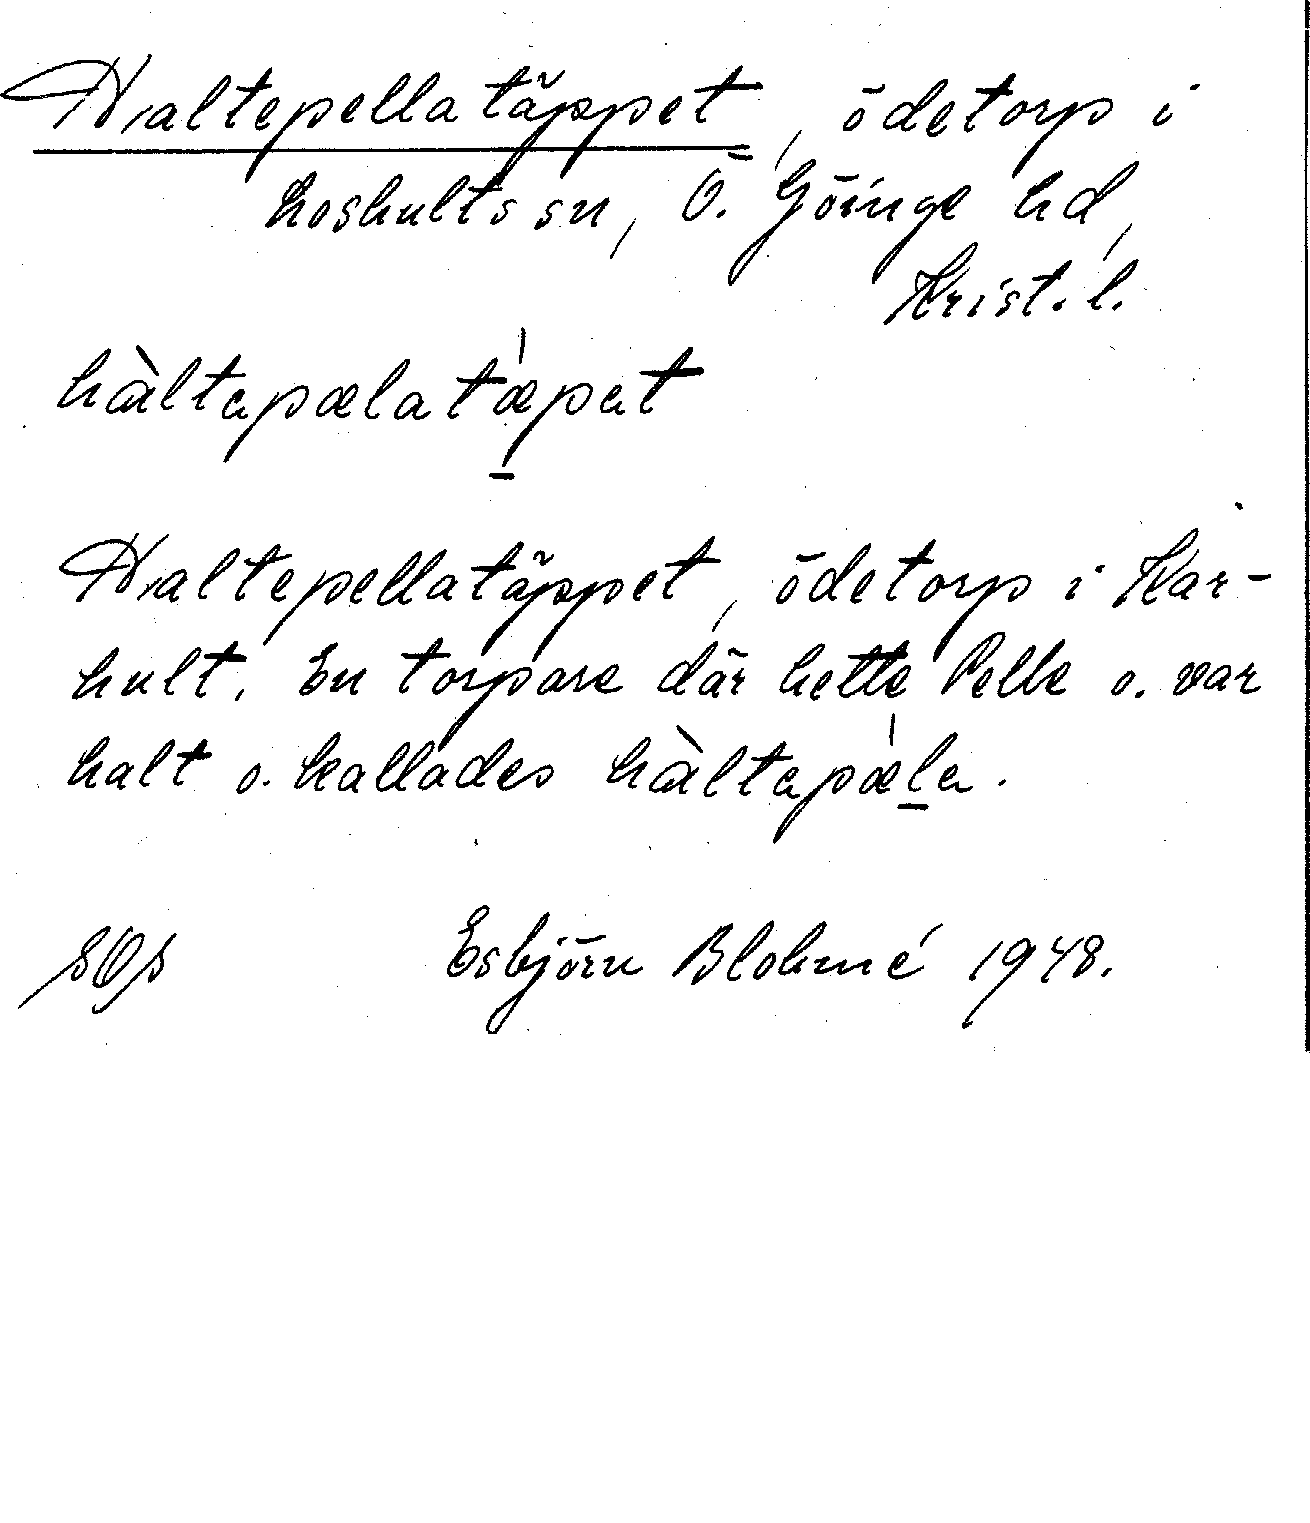 Haltepellatäppet, ödetorp i
Loshults sn, Ö. Göinge hd,
Krist. l.
hàltapælatæpat
Haltepellatäppet, ödetorp i Kar-
hult. En torpare där hette Pelle o. var
halt o. kallades hàltapæla.
SOS Esbjörn Blohmé 1948.